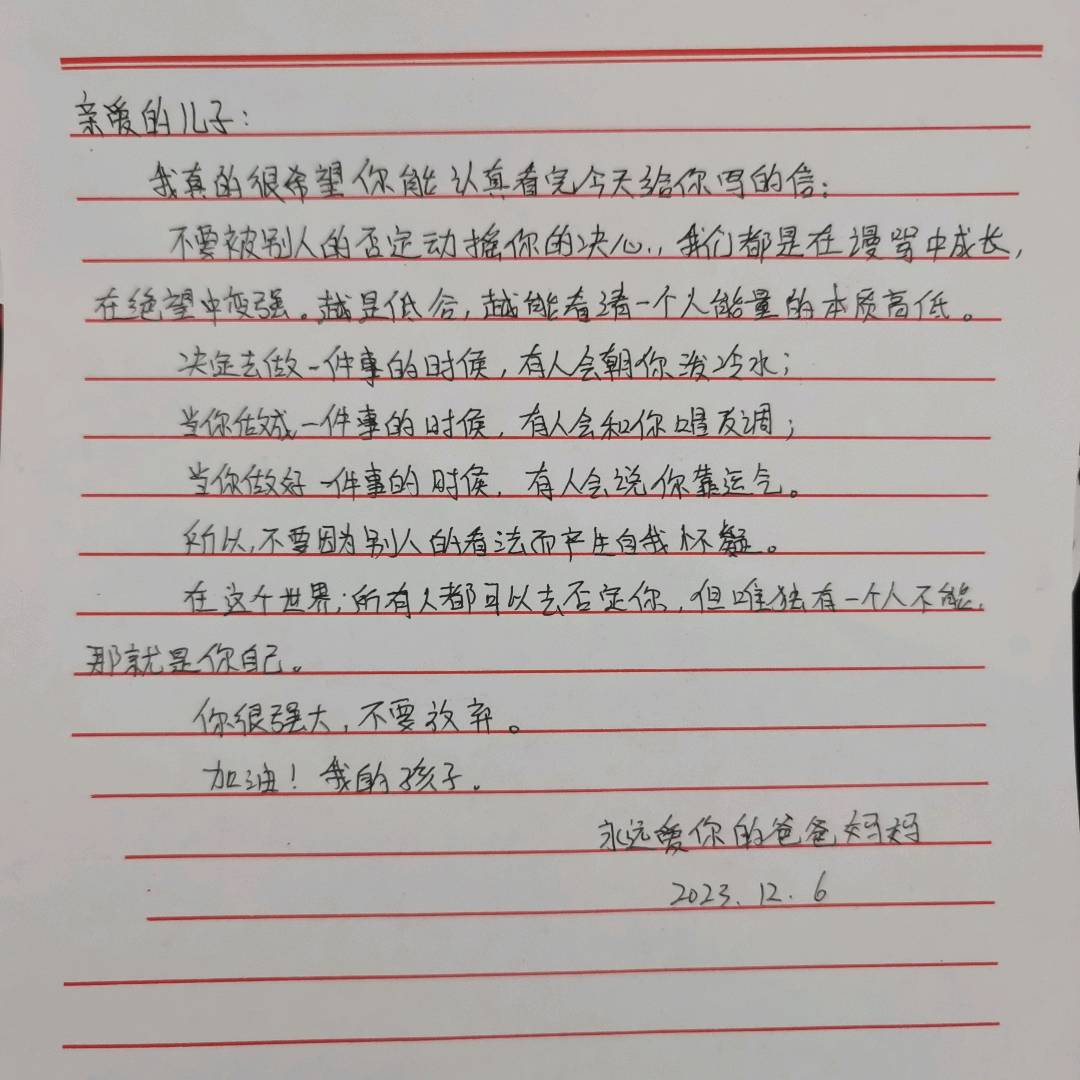 亲爱的儿子：
我真的很希望你能认真看完今天给你写的信：
不要被别人的否定动摇你的决心，我们都是在谩骂中成长，
在绝望中变强。越是低谷，越能看清一个人能量的本质高低。
决定去做一件事的时候，有人会朝你泼冷水；
当你做成一件事的时候，有人会和你唱反调；
当你做好一件事的时候，有人会说你靠运气。
所以，不要因为别人的看法而产生自我怀疑。
在这个世界，所有人都可以去否定你，但唯独有一个人不能，
那就是你自己。
你很强大，不要放弃。
加油！我的孩子。
永远爱你的爸爸妈妈
2023.12.6